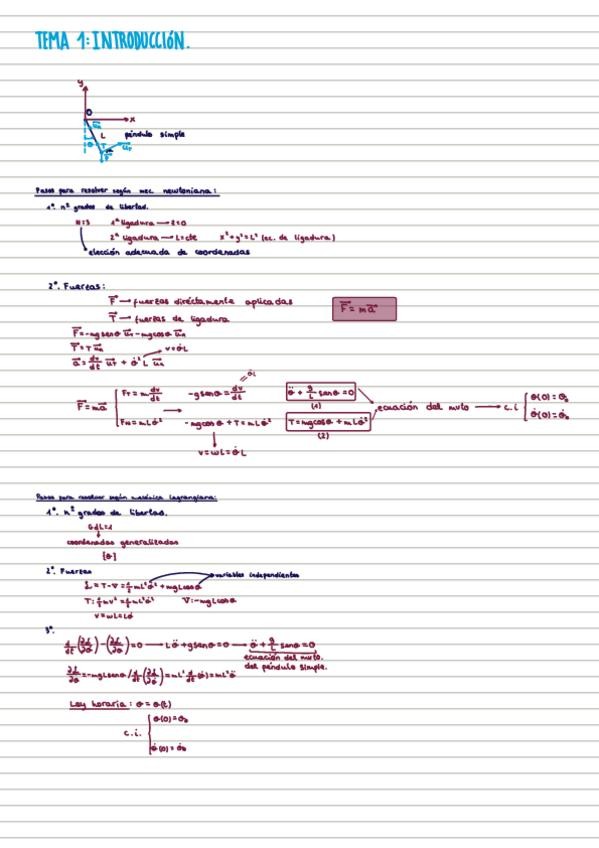 TEMA 1: INTRODUCCIÓN.
y
O
x
L
péndulo simple
θ
T
Pasos para resolver según mec. newtoniana:
1º. nº grados de libertad.
N=3 1ª ligadura → z=0
2ª ligadura → L=cte x²+y²=L² (ec. de ligadura)
elección adecuada de coordenadas
2º. Fuerzas:
F⃗ → fuerzas directamente aplicadas
F⃗=ma⃗
T⃗ → fuerzas de ligadura
F⃗=-mg senθ u⃗τ -mg cosθ u⃗n
T⃗=T u⃗n
v=θ̇L
a⃗=dv/dt u⃗τ + θ̇²L u⃗n
F⃗=ma⃗ { Fτ=m dv/dt → -g senθ = dv/dt θ̈L θ̈ + g/L senθ=0 (1)
FN=mLθ̇² -mg cosθ + T = mLθ̇² T=mg cosθ + mLθ̇² (2)
ecuación del mvto → c.i { θ(0)=θ₀
θ̇(0)=θ̇₀
v=ωL=θ̇L
Pasos para resolver según mecánica lagrangiana:
1º. nº grados de libertad.
GdL=1
coordenadas generalizadas
{θ}
2º. Fuerzas
L=T-V=½mL²θ̇²+mgLcosθ → variables independientes
T:½mv²=½mL²θ̇² V:-mgLcosθ
v=ωL=Lθ̇
3º.
d/dt(∂L/∂θ̇)-(∂L/∂θ)=0 → Lθ̈+g senθ=0 → θ̈+g/L senθ=0
ecuación del mvto.
del péndulo simple.
∂L/∂θ=-mgLsenθ / d/dt(∂L/∂θ̇)=mL² d/dt(θ̇)=mL²θ̈
Ley horaria: θ=θ(t)
c.i. { θ(0)=θ₀
θ̇(0)=θ̇₀